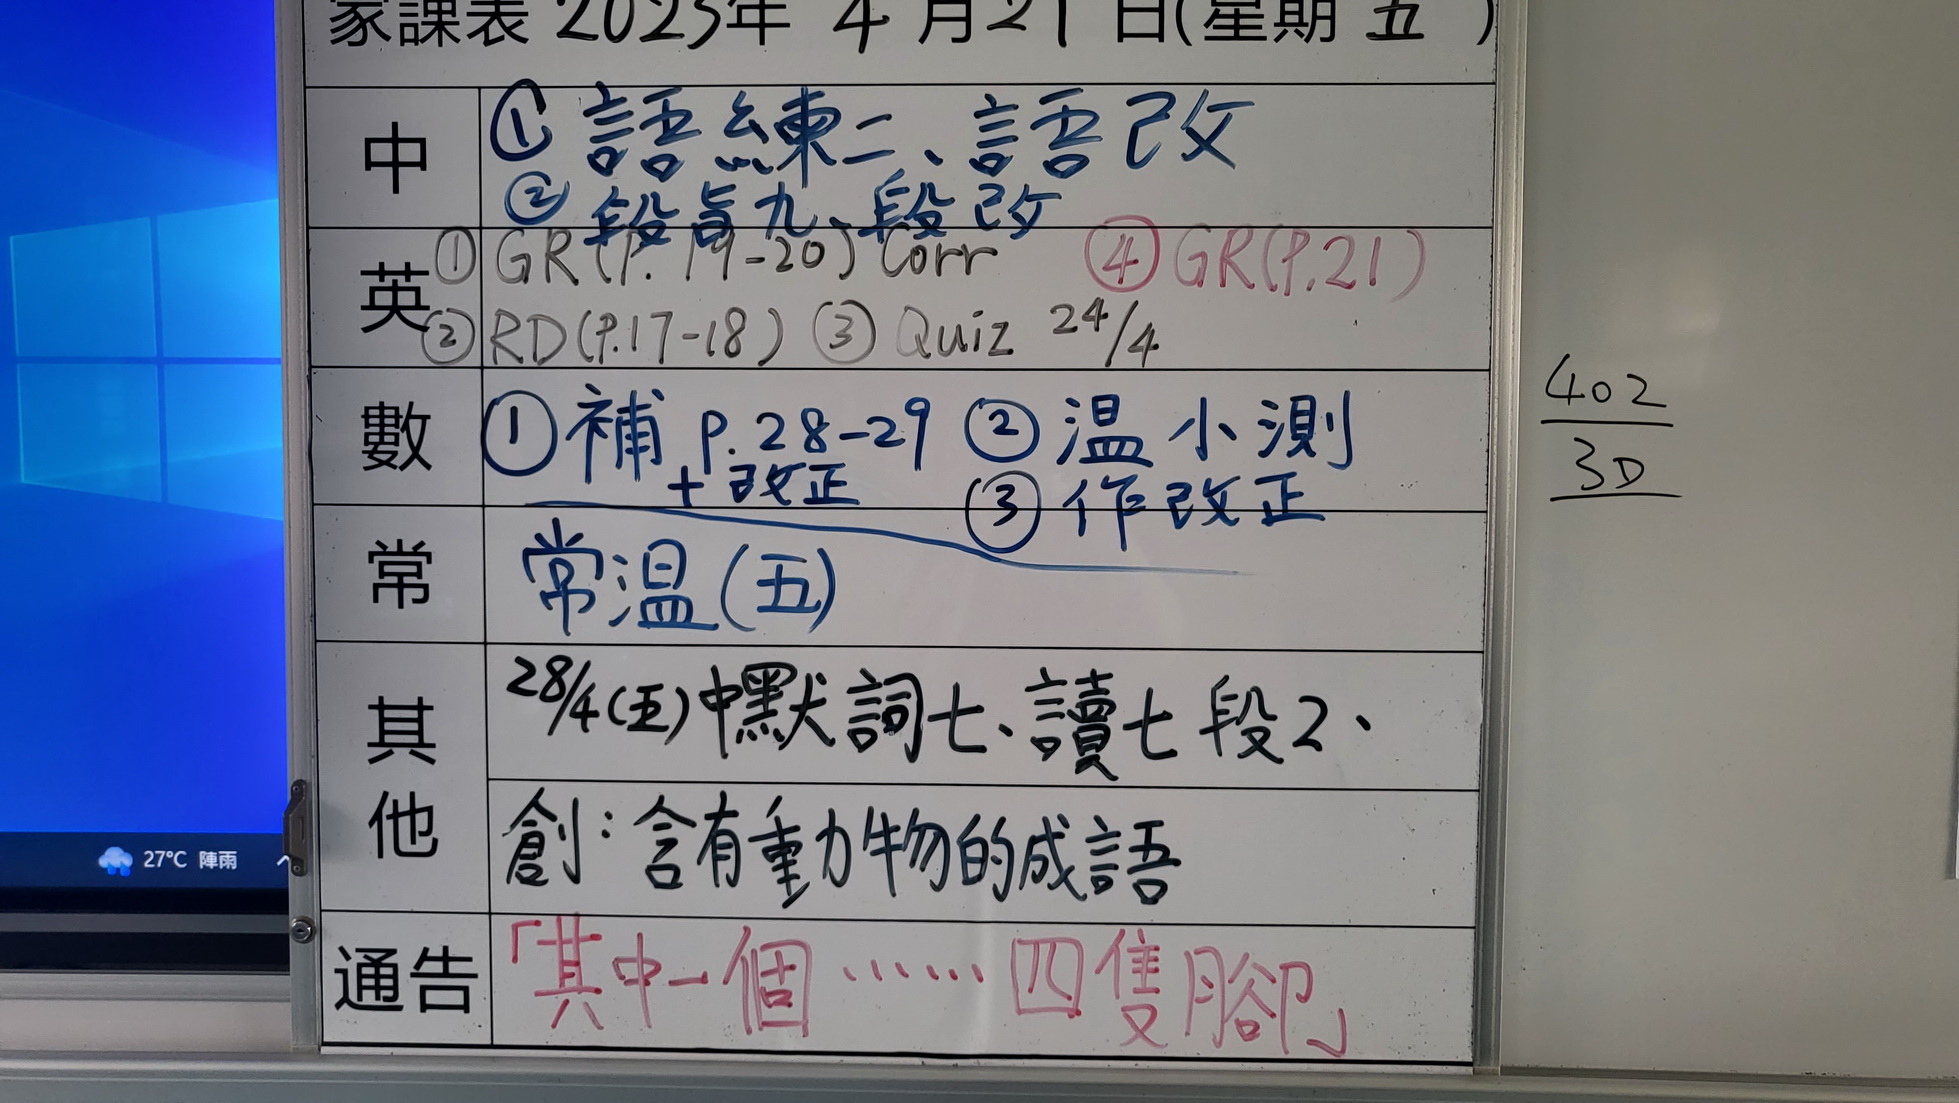 家課表 2023年 4月21日(星期 五 )
中
① 語練二、語改
② 段頁九、段改
英
① GR(P. 19-20) Corr ④ GR(P.21)
② RD(P.17-18) ③ Quiz 24/4
數
① 補 P.28-29 ② 温小測
+ 改正 ③ 作改正
常
常温(五)
其他
28/4(五)中默詞七、讀七段2、
創:含有動物的成語
通告
「其中一個……四隻腳」
402
3D
27°C 陣雨